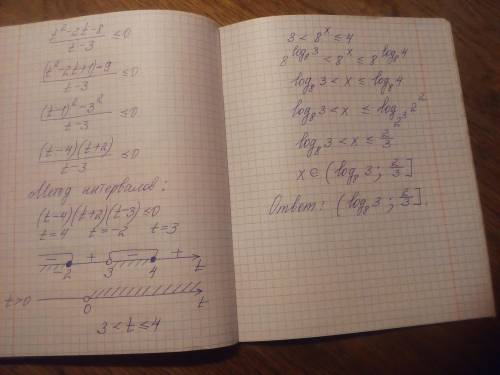 (t²-2t-8)/(t-3) ≤0
((t²-2t+1)-9)/(t-3) ≤0
((t-1)²-3²)/(t-3) ≤0
((t-4)(t+2))/(t-3) ≤0
Метод интервалов:
(t-4)(t+2)(t-3)≤0
t=4 t=-2 t=3
- + - +
-2 3 4 t
t>0 0 t
3<t≤4
3 < 8^x ≤4
8^(log₈3) < 8^x ≤ 8^(log₈4)
log₈3 < x ≤ log₈4
log₈3 < x ≤ log_(2³)2²
log₈3 < x ≤ 2/3
x∈ (log₈3; 2/3]
Ответ: (log₈3; 2/3].